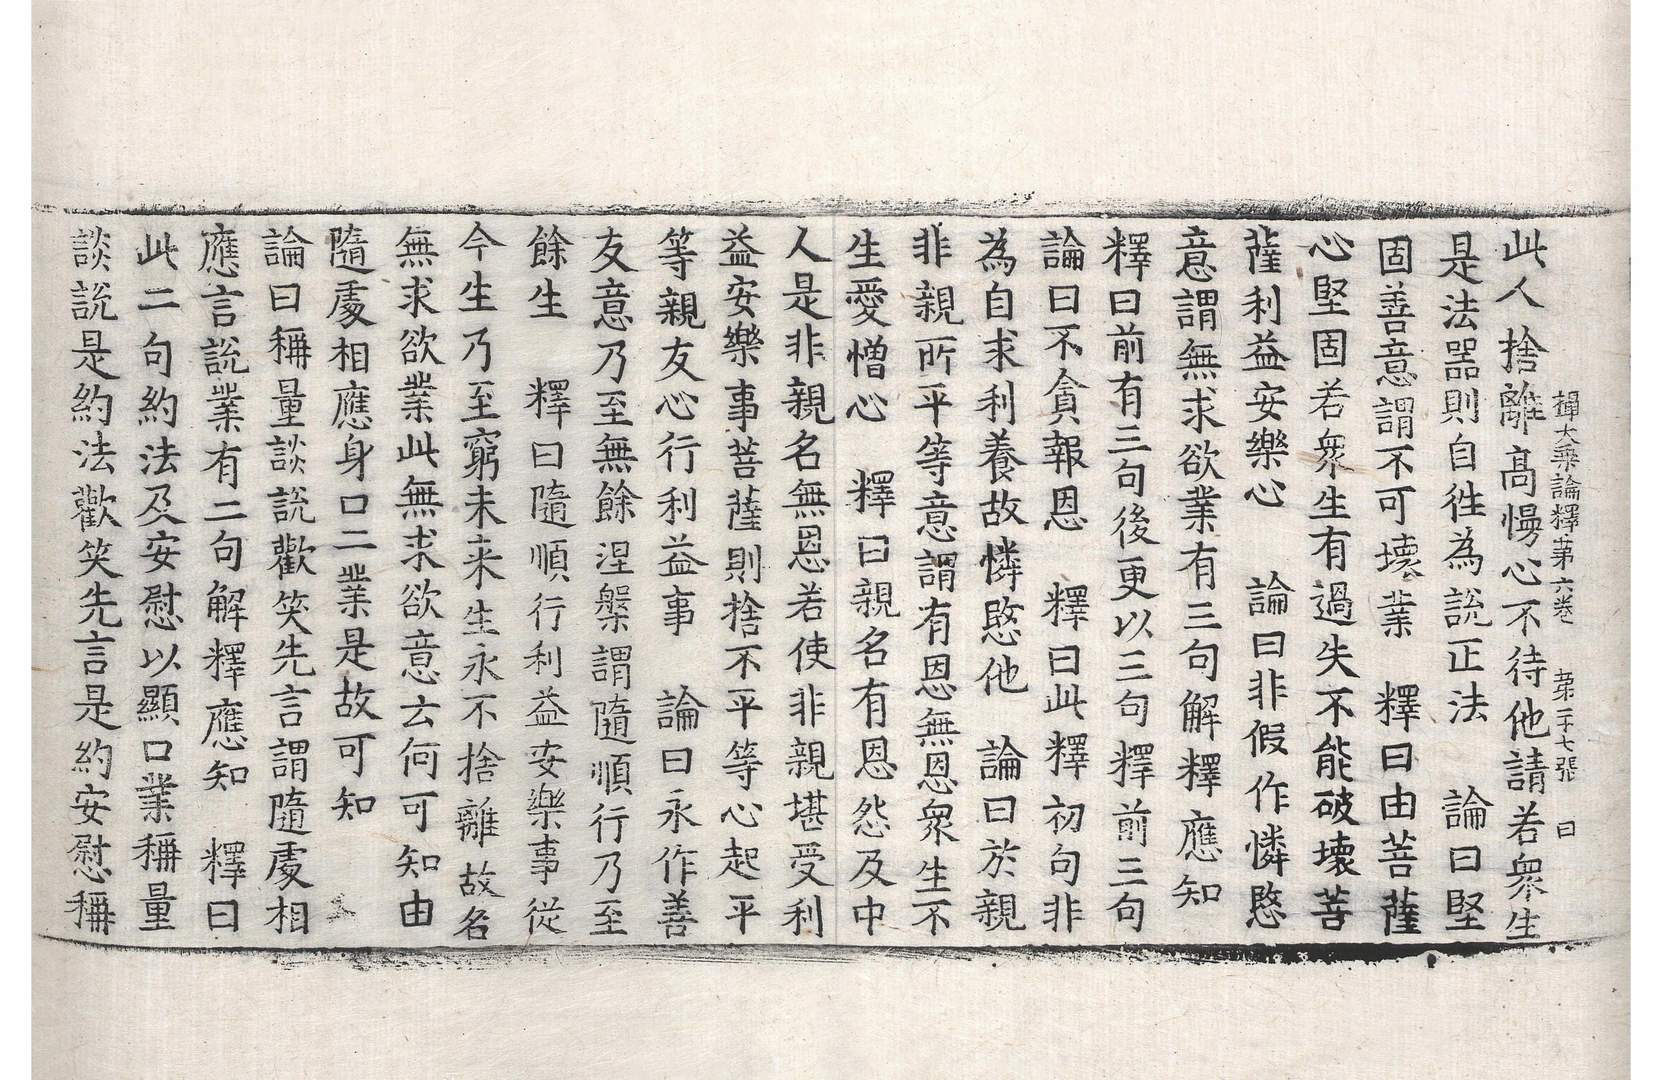 攝大乘論釋第六卷　第二十七張　日
此人捨離高慢心不待他請若衆生
是法器則自往為說正法　論曰堅
固善意謂不可壞業　釋曰由菩薩
心堅固若衆生有過失不能破壞菩
薩利益安樂心　論曰非假作憐愍
意謂無求欲業有三句解釋應知
釋曰前有三句後更以三句釋前三句
論曰不貪報恩　釋曰此釋初句非
為自求利養故憐愍他　論曰於親
非親所平等意謂有恩無恩衆生不
生愛憎心　釋曰親名有恩怨及中
人是非親名無恩若使非親堪受利
益安樂事菩薩則捨不平等心起平
等親友心行利益事　論曰永作善
友意乃至無餘涅槃謂隨順行乃至
餘生　釋曰隨順行利益安樂事從
今生乃至窮未来生永不捨離故名
無求欲業此無求欲意云何可知由
隨處相應身口二業是故可知
論曰稱量談說歡笑先言謂隨處相
應言說業有二句解釋應知　釋曰
此二句約法及安慰以顯口業稱量
談說是約法歡笑先言是約安慰稱